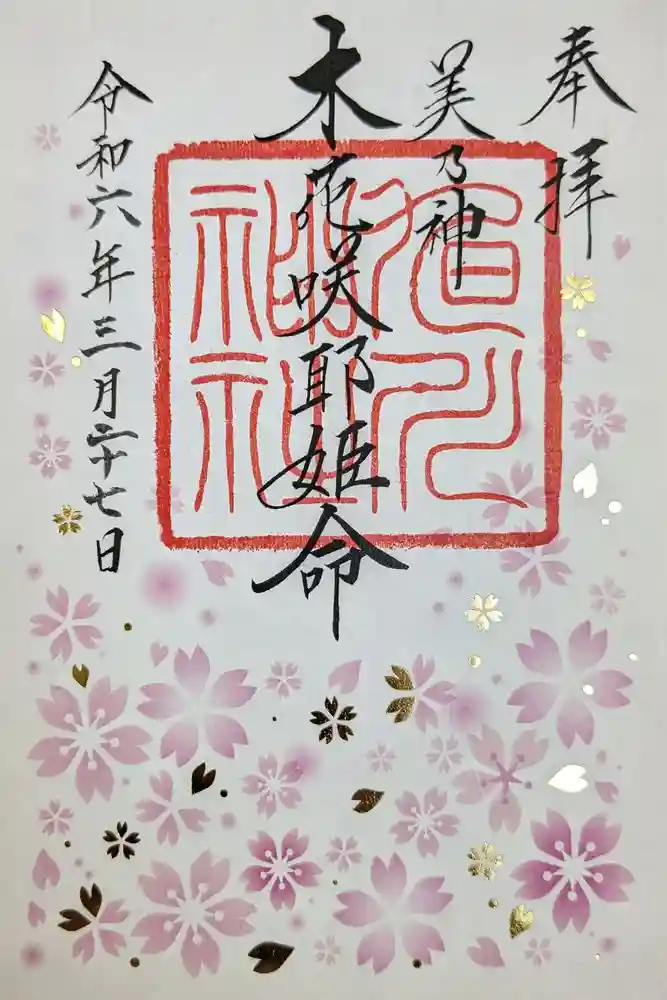 奉拝
美乃神
木花咲耶姫命
神社
令和六年三月二十七日